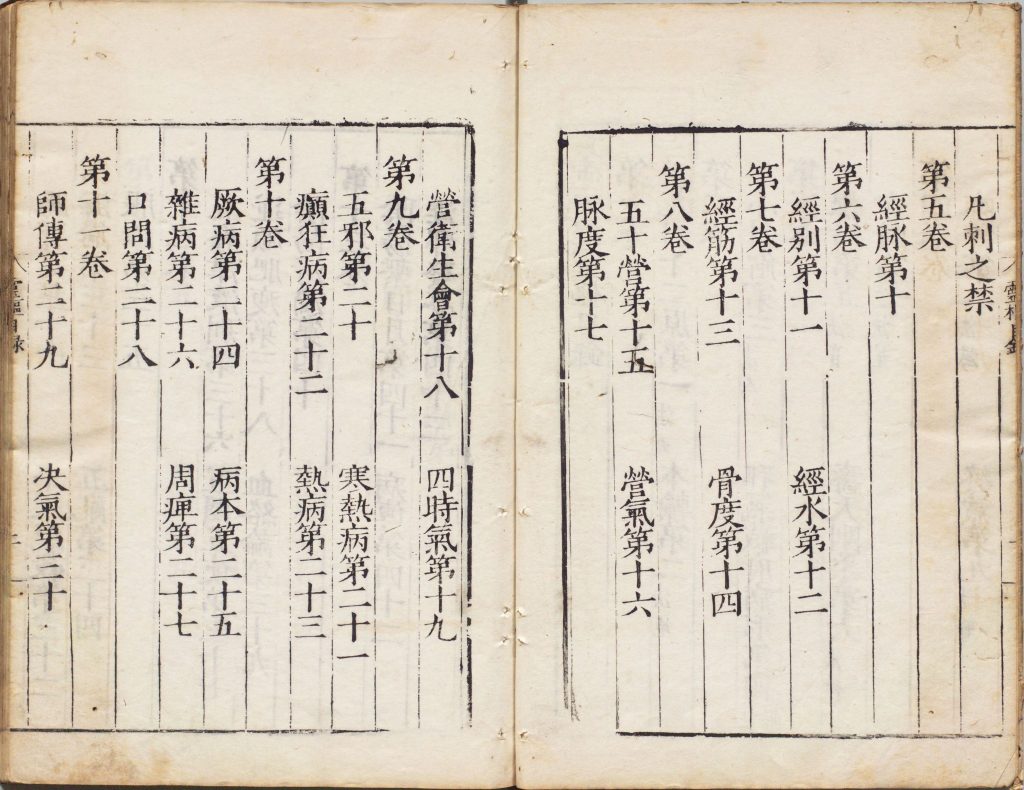 凡刺之禁
第五卷
經脉第十
第六卷
經别第十一　經水第十二
第七卷
經筋第十三　骨度第十四
第八卷
五十營第十五　營氣第十六
脉度第十七
營衛生會第十八　四時氣第十九
第九卷
五邪第二十　寒熱病第二十一
癲狂病第二十二　熱病第二十三
第十卷
厥病第二十四　病本第二十五
雜病第二十六　周痺第二十七
口問第二十八
第十一卷
師傳第二十九　决氣第三十